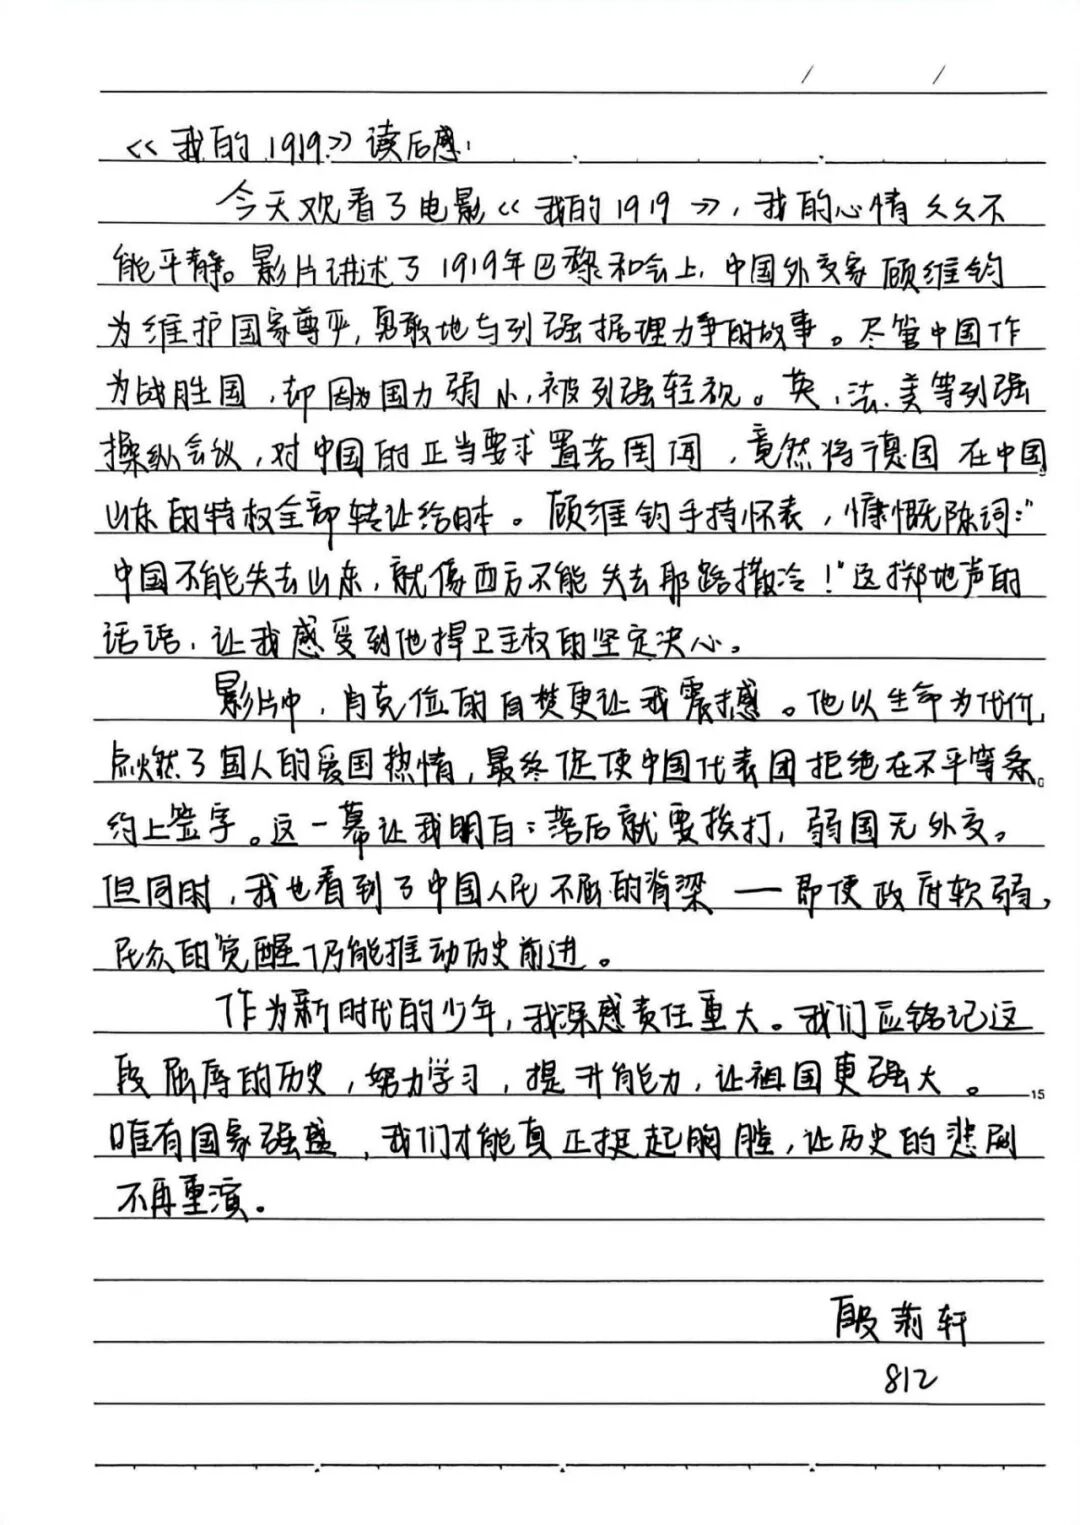 《我的1919》读后感:
今天观看了电影《我的1919》,我的心情久久不
能平静。影片讲述了1919年巴黎和会上,中国外交家顾维钧
为维护国家尊严,勇敢地与列强据理力争的故事。尽管中国作
为战胜国,却因为国力弱小,被列强轻视。英、法、美等列强
操纵会议,对中国的正当要求置若罔闻,竟然将德国在中国
山东的特权全部转让给日本。顾维钧手持怀表,慷慨陈词:“
中国不能失去山东,就像西方不能失去耶路撒冷!”这掷地声的
话语,让我感受到他捍卫主权的坚定决心。
影片中,肖克俭的自焚更让我震撼。他以生命为代价,
点燃了国人的爱国热情,最终促使中国代表团拒绝在不平等条
约上签字。这一幕让我明白:落后就要挨打,弱国无外交。
但同时,我也看到了中国人民不屈的脊梁——即使政府软弱,
民众的觉醒仍能推动历史前进。
作为新时代的少年,我深感责任重大。我们应铭记这
段屈辱的历史,努力学习,提升能力,让祖国更强大。
15
唯有国家强盛,我们才能真正挺起胸膛,让历史的悲剧
不再重演。
殷莉轩
812